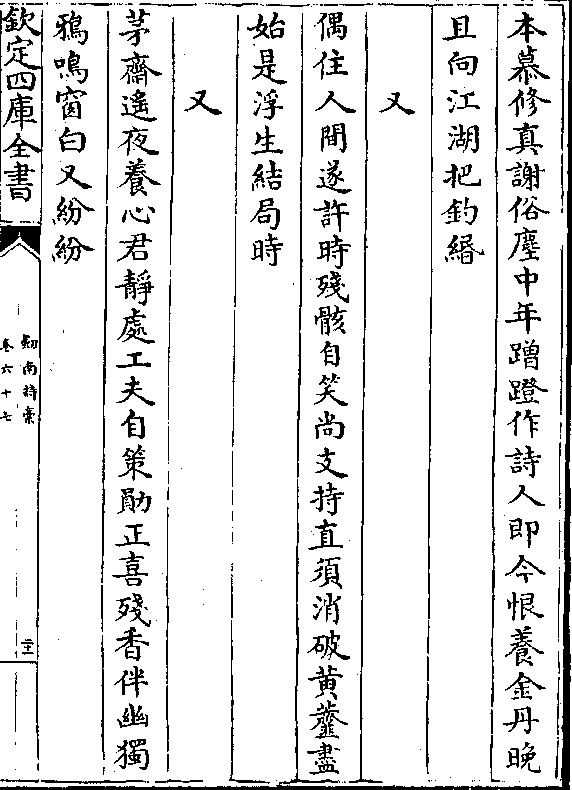 本慕修真謝俗塵中年蹭蹬作詩人即今恨養金丹晚
且向江湖把釣緡
又
偶住人間遂許時殘骸自笑尚支持直須消破黃虀盡
始是浮生結局時
又
茅齋遙夜養心君靜處工夫自策勛正喜殘香伴幽獨
鴉鳴窗白又紛紛
欽定四庫全書
劒南詩稾
卷六十七
二十